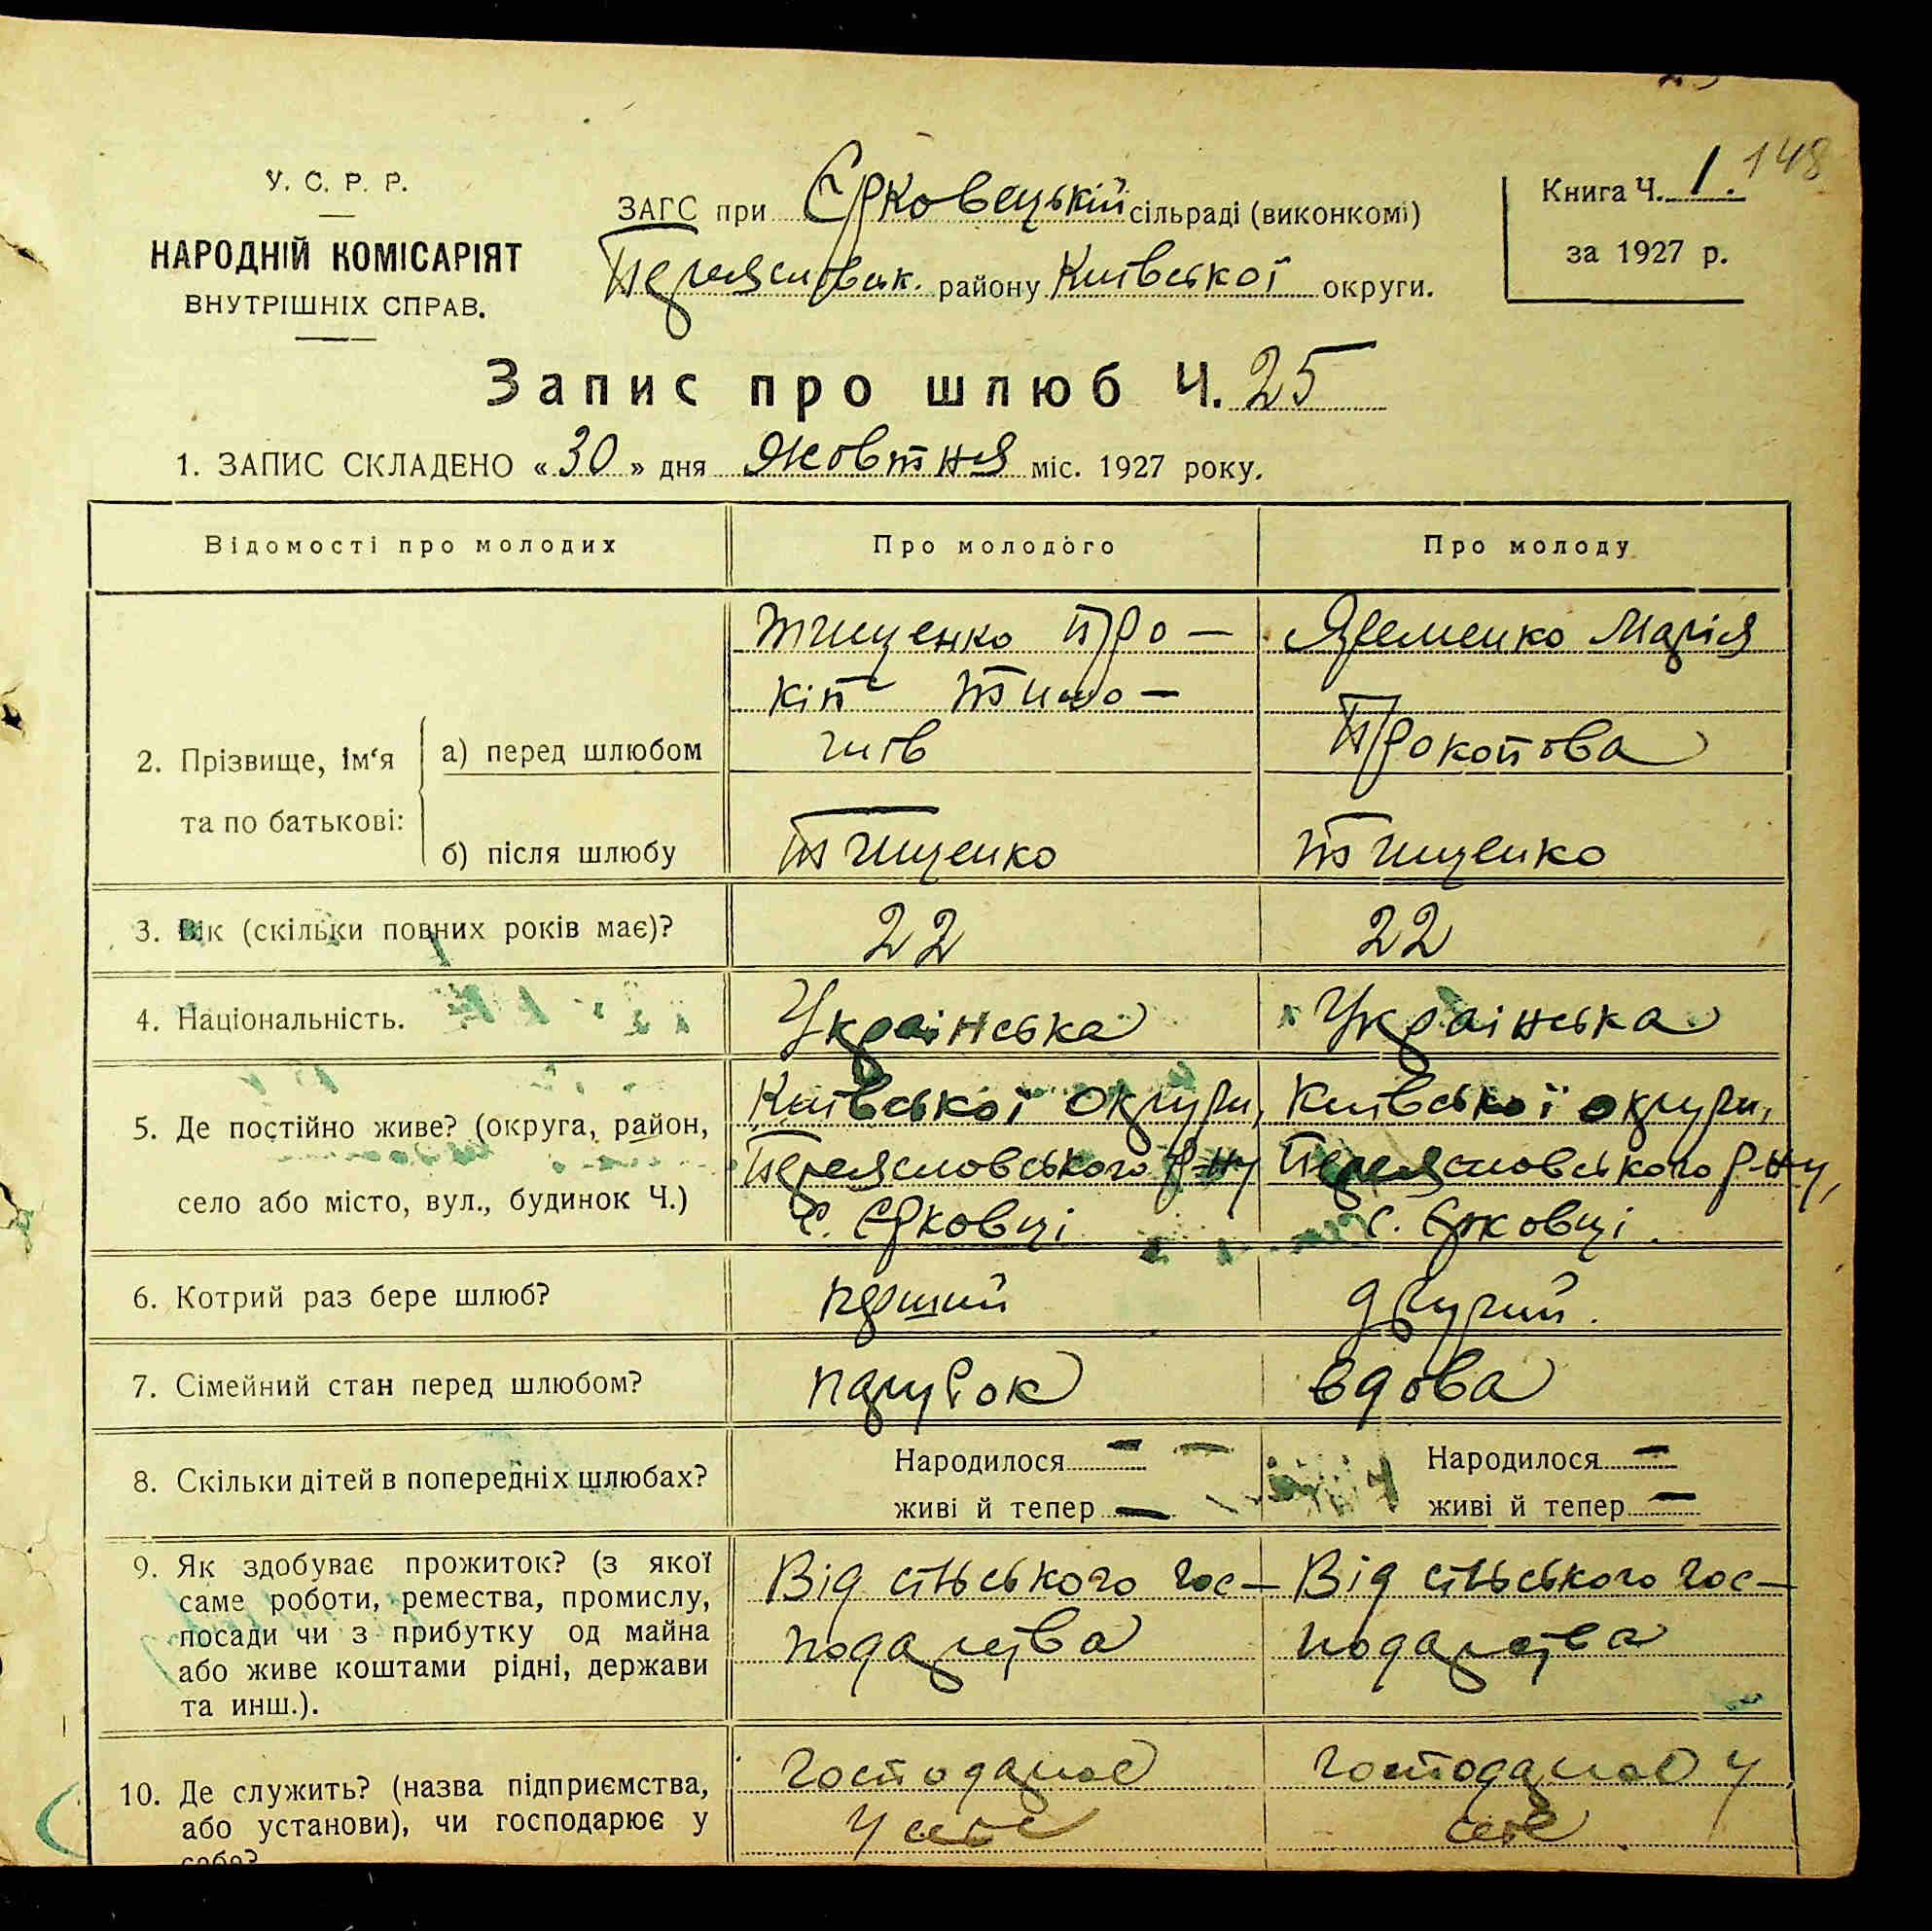 148
У. С. Р. Р.
НАРОДНІЙ КОМІСАРІЯТ
ВНУТРІШНІХ СПРАВ.
ЗАГС при Єрковецькій сільраді (виконкомі)
Переяславськ. району Київської округи.
Книга Ч. 1.
за 1927 р.
Запис про шлюб Ч. 25
1. ЗАПИС СКЛАДЕНО «30» дня Жовтня міс. 1927 року.
Відомості про молодих Про молодого Про молоду
2. Прізвище, ім'я та по батькові:
а) перед шлюбом
Тищенко Про–
кіп Тимо–
хиїв
Яременко Марія
Прокопова
б) після шлюбу Тищенко Тищенко
3. Вік (скільки повних років має)? 22 22
4. Національність. Українська Українська
5. Де постійно живе? (округа, район,
село або місто, вул., будинок Ч.)
Київської округи,
Переясловського р-ну
с. Єрковці
Київської округи,
Переясловського р-ну,
с. Єрковці.
6. Котрий раз бере шлюб? перший другий.
7. Сімейний стан перед шлюбом? парубок вдова
8. Скільки дітей в попередніх шлюбах?
Народилося –
живі й тепер –
Народилося –
живі й тепер –
9. Як здобуває прожиток? (з якої
саме роботи, ремества, промислу,
посади чи з прибутку од майна
або живе коштами рідні, держави
та инш.).
Від сільського гос–
подарства
Від сільського гос–
подарства
10. Де служить? (назва підприємства,
або установи), чи господарює у
себе?
Господарює
у себе
Господарює у
себе